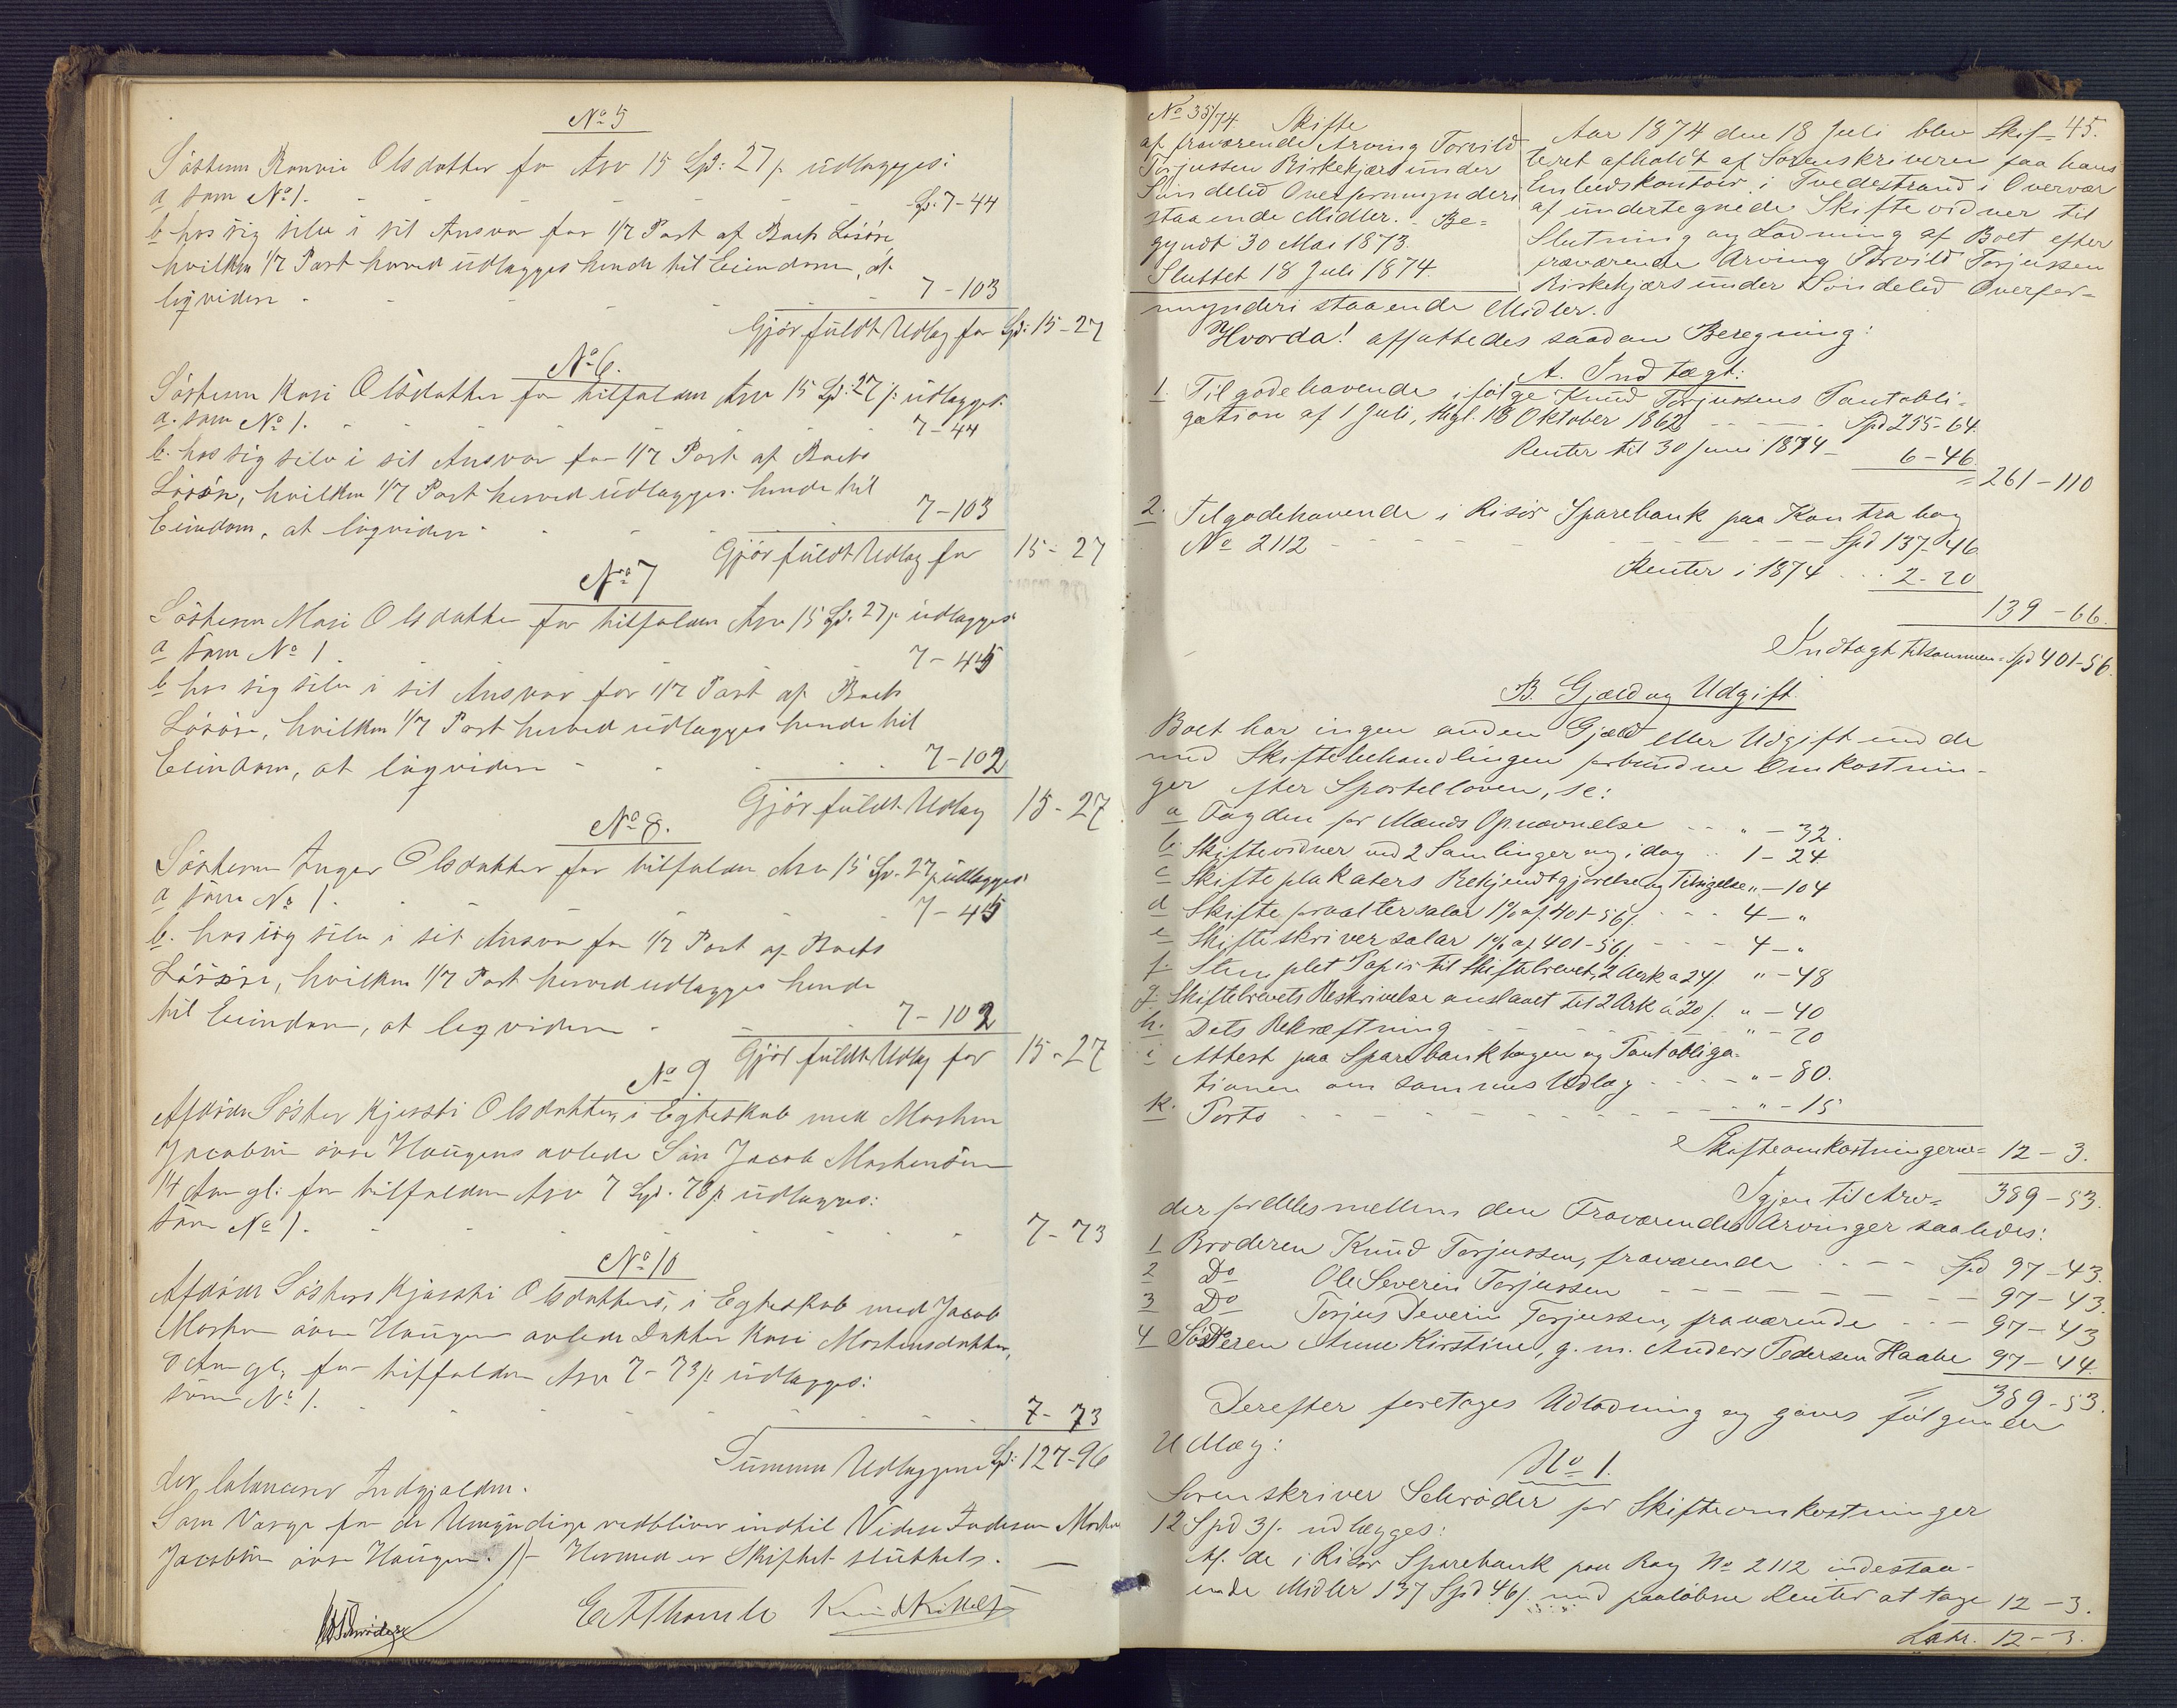 No 5
Søsteren Ranvei Olsdatter for Arv 15 Spd: 27 s. udlægges:
a som No 1. - - - - - Sp. 7-44
b. hos sig selv i sit Ansvar for 1/7 Part af Boets Løsøre
hvilken 1/7 Part herved udlægges hende til Eiendom, at
liqvidere - - - - - 7-103
Gjør fuldt Udlæg for Sp: 15-27
No 6.
Søsteren Kari Olsdatter for tilfalden Arv 15 Sp: 27 s. udlægges:
a. som No 1. - - - - 7-44
b. hos sig selv i sit Ansvar for 1/7 Part af Boets
Løsøre, hvilken 1/7 Part herved udlægges hende til
Eiendom, at liqvidere - - - - 7-103
Gjør fuldt Udlæg for 15-27
No 7
Søsteren Mari Olsdatter for tilfalden Arv 15 Sp. 27 s. udlægges
a som No 1 - - - 7-45
b hos sig selv i sit Ansvar for 1/7 Part af Boets
Løsøre, hvilken 1/7 Part herved udlægges hende til
Eiendom, at liqvidere - - - - 7-102
Gjør fuldt Udlæg 15-27
No 8.
Søsteren Inger Olsdatter for tilfalden Arv 15 Sp. 27 s. udlægges
a som No 1. - - - - 7-45
b. hos sig selv i sit Ansvar for 1/7 Part af Boets
Løsøre, hvilken 1/7 Part herved udlægges hende
til Eiendom, at liqvidere - - - 7-102
Gjør fuldt Udlæg for 15-27
No 9.
Afdøde Søster Kjersti Olsdatter, i Egteskab med Morten
Jacobsen øvre Haugens avlede Søn Jacob Mortensen
14 Aar gl: for tilfalden Arv 7 Spd. 73 s. udlægges:
som No 1. - - - - - - 7-73
No 10
Afdøde Søsters Kjersti Olsdatters, i Egteskab med Jacob
Morten øvre Haugen avlede Datter Kari Mortensdatter,
8 Aar gl, for tilfalden Arv 7-73 s. udlægges:
som No 1. - - - - - - 7-73
Summa Udlæggene Sp: 127-96
der balancerer Indgjælden.
Som Værge for de Umyndige vedbliver indtil Videre Faderen Morten
Jacobsen øvre Haugen. /- Hermed er Skiftet sluttet. -
Schrøder
Knud Kittels
No 35/74. Skifte
af fraværende Arving Torvild
Torjussen Birkekjærs under
Søndeled Overformynderi
staaende Midler. - Be-
gyndt 30 Mai 1873.
Sluttet 18 Juli 1874.
45.
Aar 1874 den 18 Juli blev Skif-
teret afholdt af Sorenskriveren paa hans
Embedskontoir i Tvedestrand i Overvær
af undertegnede Skiftevidner til
Slutning og Lodning af Boet efter
fraværende Arving Torvild Torjussen
Birkekjærs under Søndeled Overfor-
mynderi staaende Midler.
Hvorda! affattedes saadan Beregning:
A. Indtægt:
1. Tilgodehavende ifølge Knud Torjussens Pantobli-
gation af 1 Juli, thgl. 18 Oktober 1862 - - - - Spd 255-64.
Renter til 30 Juni 1874 - 6-46.
= 261-110
2. Tilgodehavende i Risør Sparebank paa Kontrabog
No 2112 - - - - - - Spd 137-46
Renter i 1874 . . . 2-20
139-66.
Indtægt tilsammen = Spd 401-56.
B. Gjæld og Udgift.
Boet har ingen anden Gjæld eller Udgift end de
med Skiftebehandlingen forbundne Omkostnin-
ger efter Sportelloven, se:
a Fogden for Mænds Opnævnelse - - " - 32.
b. Skiftevidner ved 2 Samlinger og idag . . 1-24
c Skifteplakaters Bekjendtgjørelse og Tilsigelse " - 104
d Skifteforvaltersalær 1% af 401-56 s. - - - 4 - "
e Skifteskriversalær 1% af 401-56 s. - - - 4 - "
f Stemplet Papir til Skiftebrevet, 2 Ark a 24 s. " - 48
g. Skiftebrevets Beskrivelse anslaaet til 2 Ark á 20 s. " - 40
h. Dets Bekræftning - - - - " - 20
i Attest paa Sparebankbogen og Pantobliga-
tionen om sammes Udlæg - - - - " - 80.
k. Porto - - - - - - " - 15
Skifteomkostningerne = 12-3.
Igjen til Arv = 389-53.
der fordeles mellem den Fraværendes Arvinger saaledes:
1 Broderen Knud Torjussen, fraværende . . - - Spd 97-43.
2 Do Ole Severin Torjussen - - - - - 97-43.
3 Do Torjus Severin Torjussen, fraværende . . - 97-43
4 Søsteren Anne Kirstine, g. m. Anders Pedersen Haabe 97-44.
= 389-53.
Derefter foretages Udlodning og gives følgende
Udlæg:
No 1.
Sorenskriver Schrøder for Skifteomkostninger
12 Spd 3 s. udlægges:
Af de i Risør Sparebank paa Bog No 2112 indestaa-
ende Midler 137 Spd 46 s. med paaløbne Renter at tage 12-3.
Latr. 12-3.